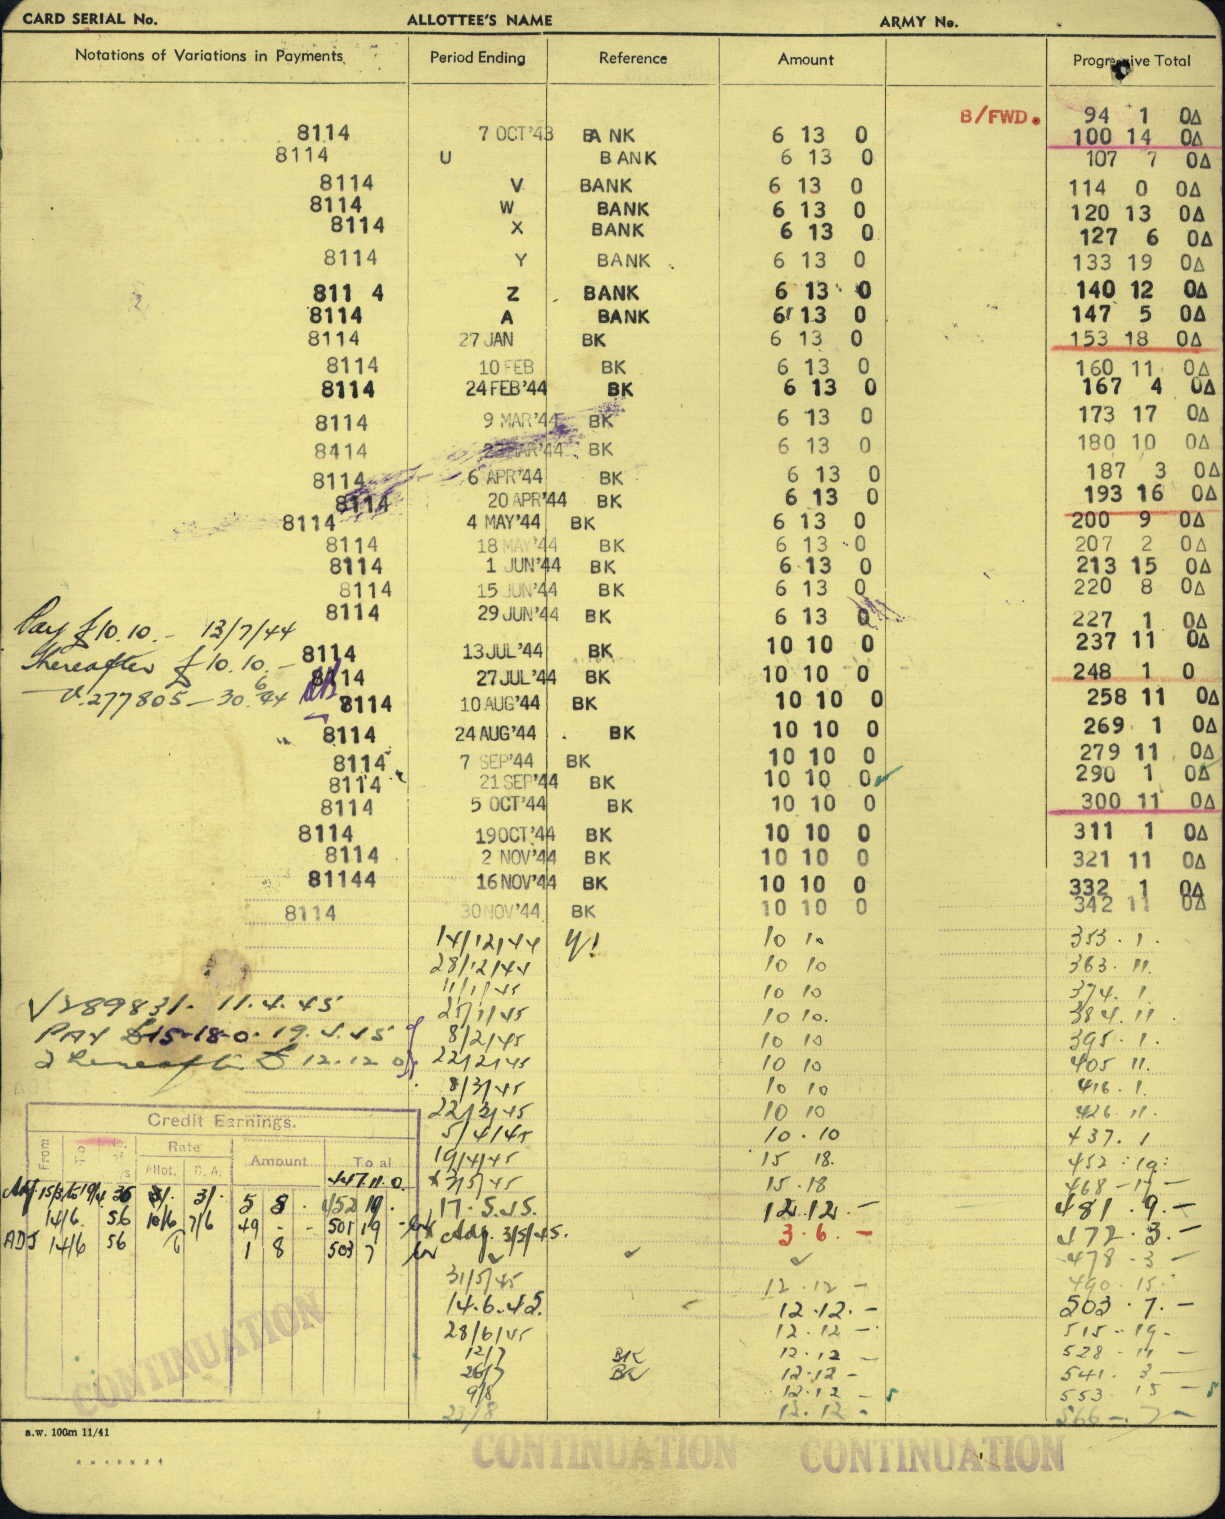 CARD SERIAL No. ALLOTTEE'S NAME ARMY No.
Notations of Variations in Payments Period Ending Reference Amount Progressive Total
B/FWD. 94 1 0Δ
8114 7 OCT'43 BANK 6 13 0 100 14 0Δ
8114 U BANK 6 13 0 107 7 0Δ
8114 V BANK 6 13 0 114 0 0Δ
8114 W BANK 6 13 0 120 13 0Δ
8114 X BANK 6 13 0 127 6 0Δ
8114 Y BANK 6 13 0 133 19 0Δ
811 4 Z BANK 6 13 0 140 12 0Δ
8114 A BANK 6 13 0 147 5 0Δ
8114 27 JAN BK 6 13 0 153 18 0Δ
8114 10 FEB BK 6 13 0 160 11 0Δ
8114 24 FEB'44 BK 6 13 0 167 4 0Δ
8114 9 MAR'44 BK 6 13 0 173 17 0Δ
8414 23 MAR'44 BK 6 13 0 180 10 0Δ
8114 6 APR'44 BK 6 13 0 187 3 0Δ
8114 20 APR'44 BK 6 13 0 193 16 0Δ
8114 4 MAY'44 BK 6 13 0 200 9 0Δ
8114 18 MAY'44 BK 6 13 0 207 2 0Δ
8114 1 JUN'44 BK 6 13 0 213 15 0Δ
8114 15 JUN'44 BK 6 13 0 220 8 0Δ
8114 29 JUN'44 BK 6 13 0 227 1 0Δ
Pay £10.10.- 13/7/44
8114 13 JUL'44 BK 10 10 0 237 11 0Δ
thereafter £10.10.-
8114 27 JUL'44 BK 10 10 0 248 1 0
V.277805 - 30.6.44
8114 10 AUG'44 BK 10 10 0 258 11 0Δ
8114 24 AUG'44 . BK 10 10 0 269 1 0Δ
8114 7 SEP'44 BK 10 10 0 279 11 0Δ
8114 21 SEP'44 BK 10 10 0 290 1 0Δ
8114 5 OCT'44 BK 10 10 0 300 11 0Δ
8114 19 OCT'44 BK 10 10 0 311 1 0Δ
8114 2 NOV'44 BK 10 10 0 321 11 0Δ
81144 16 NOV'44 BK 10 10 0 332 1 0Δ
8114 30 NOV'44 BK 10 10 0 342 11 0Δ
14/12/44 10 10 353 . 1 .
28/12/44 10 10 363 . 11.
11/1/45 10 10 374 . 1
V289831. 11.4.45
25/1/45 10 10. 384 . 11 .
PAY £15-18-0. 19.4.45
8/2/45 10 10 395 . 1 .
& thereafter £12.12 0
22/2/45 10 10 405 11.
8/3/45 10 10 416 . 1.
22/3/45 10 10 426 . 11.
5/4/45 10 . 10 437 . 1
19/4/45 15 18. 452 : 19 :
3/5/45 15 . 18 468 - 17 -
17 . 5 . 45. 12 . 12 . - 481 . 9 . -
Adj. 3/5/45. 3 . 6 . - 472 . 3 . -
478 . 3 -
31/5/45 12 . 12 - 490 . 15 .
14.6.45. 12 . 12 . - 503 . 7 . -
28/6/45 12 . 12 - 515 - 19 -
12/7 BK 12 . 12 - 528 - 11 -
26/7 BK 12 . 12 - 541 . 3 -
9/8 12 . 12 - 553 15 -
23/8 12 . 12 - 566 - 7 -
Credit Earnings.
From To Rate Amount Total
Allot. D. A.
447 11 0
Adj. 15/3 to 19/4 36 3/. 3/. 5 8 . 452 19 .
14/6 56 10/6 7/6 49 - - 501 19 -
ADJ 14/6 56 1 8 503 7
CONTINUATION
a.w. 100m 11/41
CONTINUATION CONTINUATION